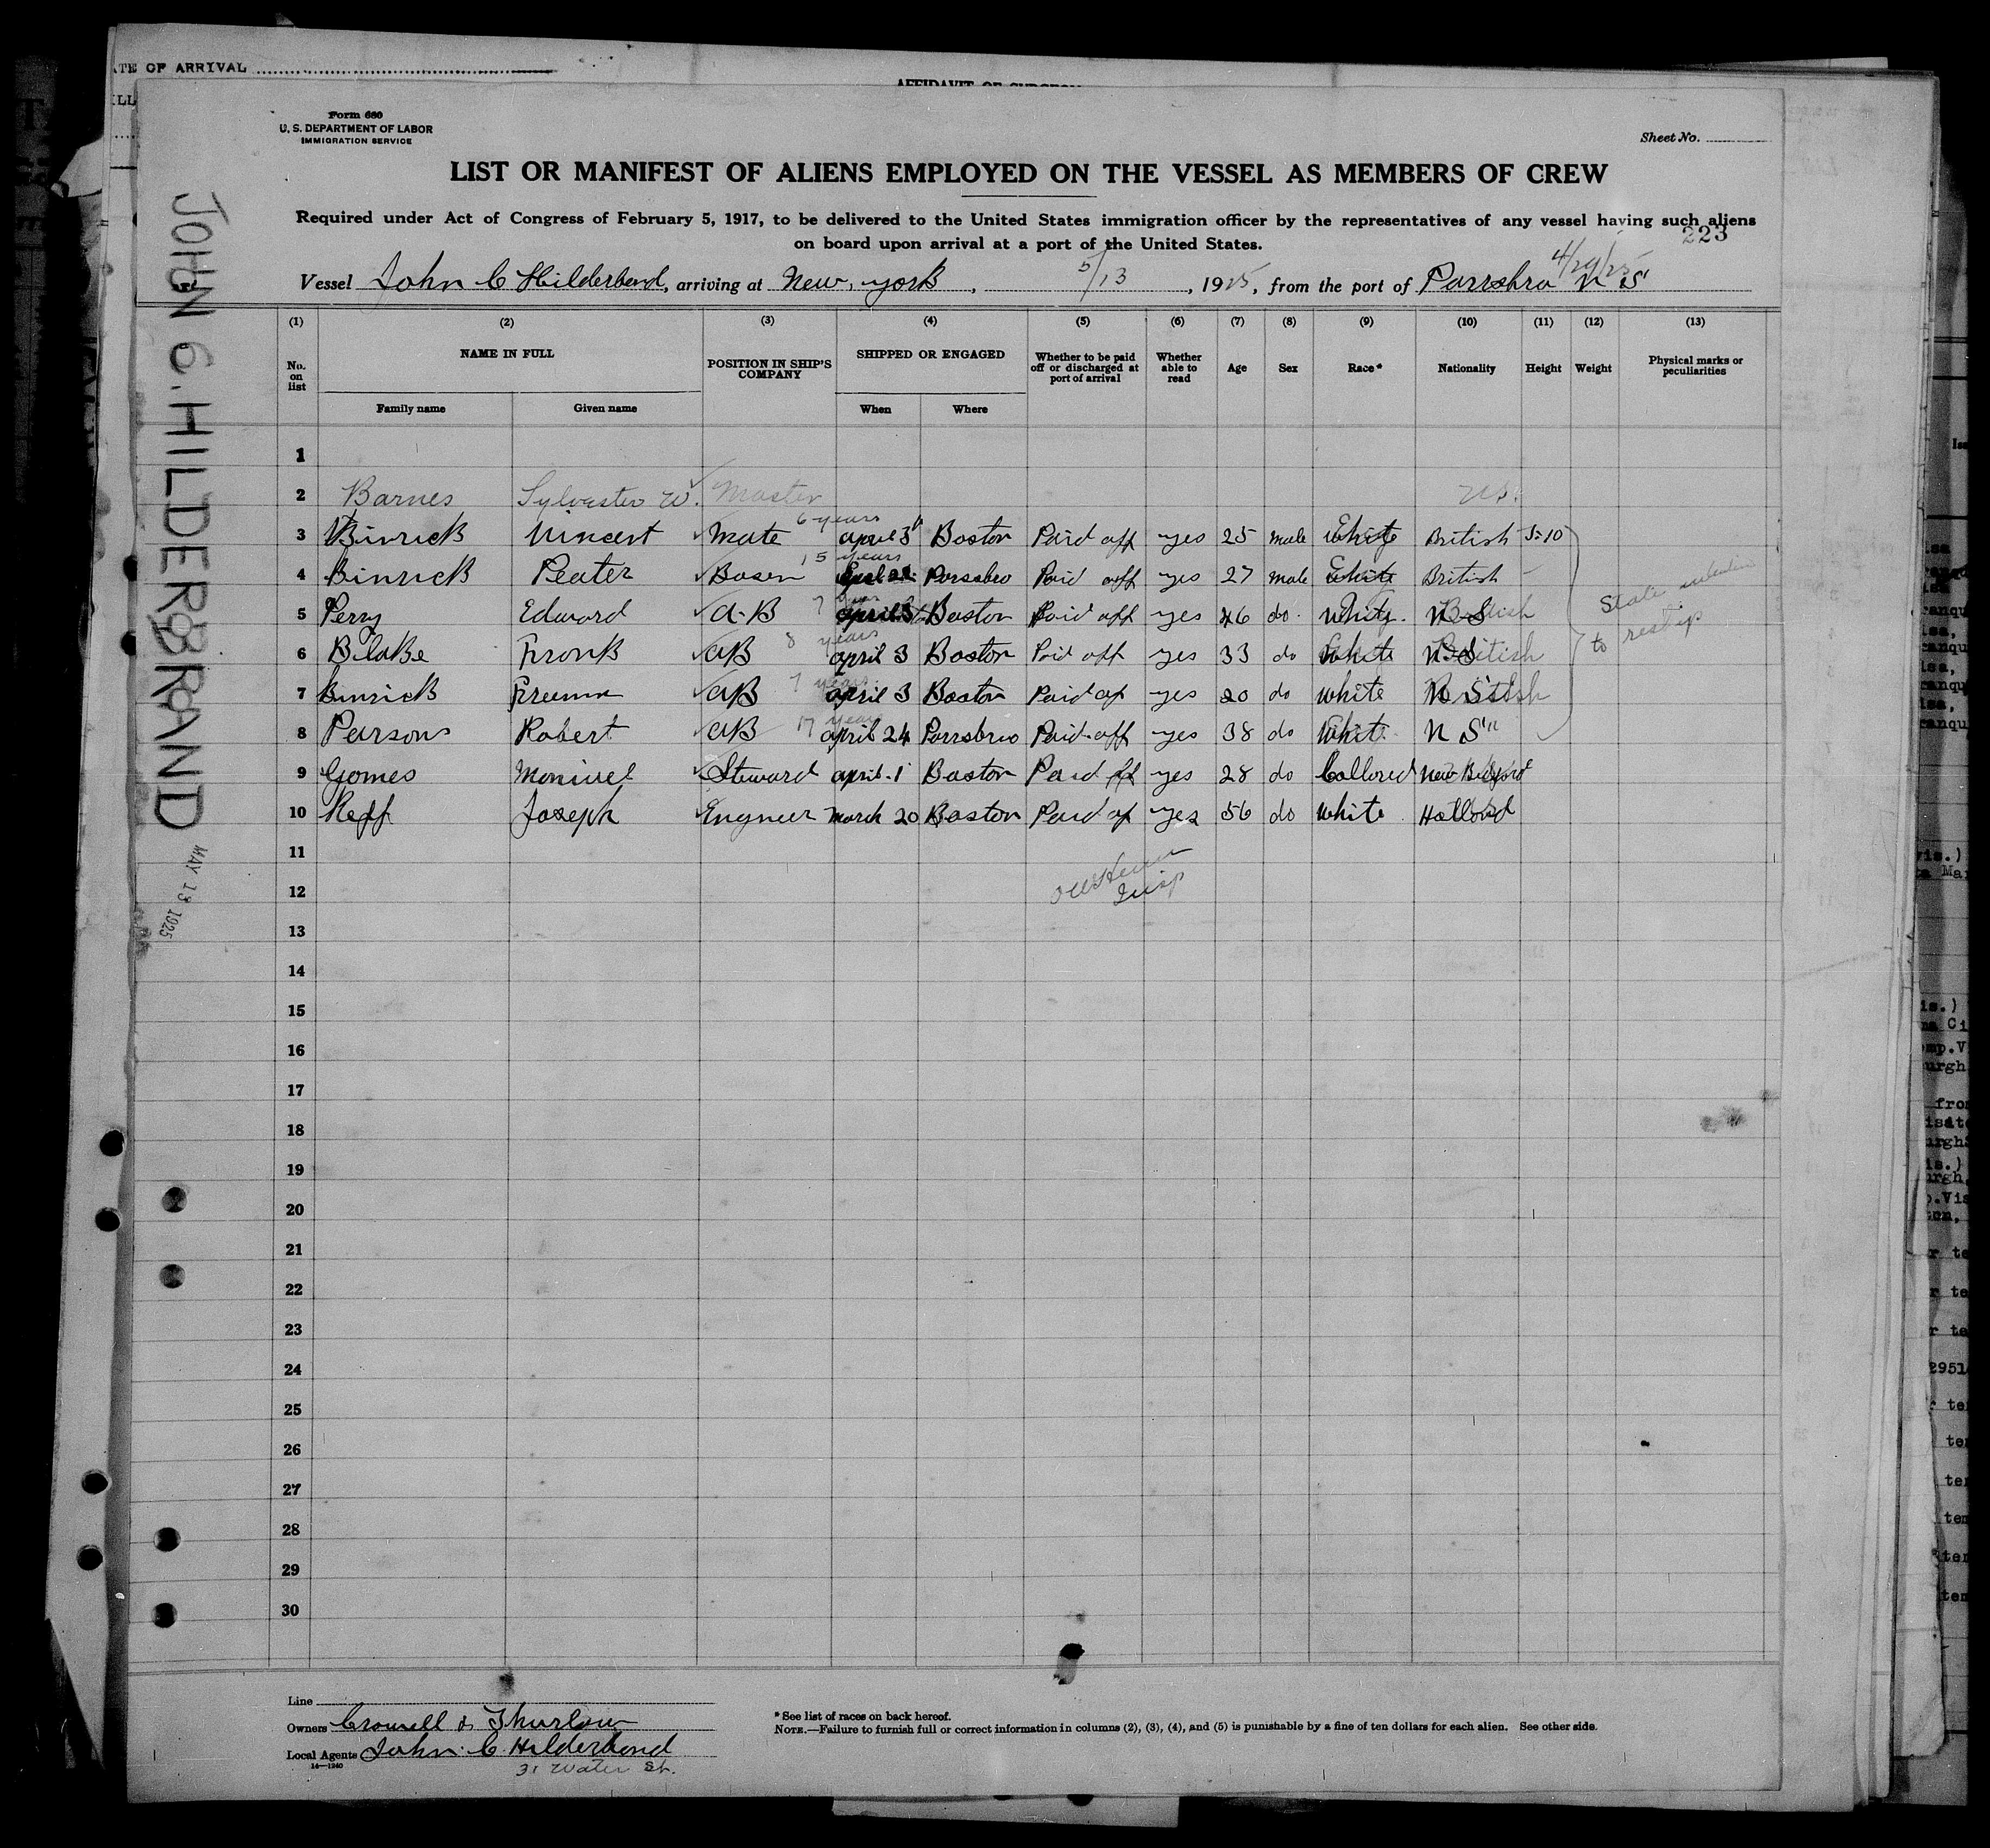 ATE OF ARRIVAL
AFFIDAVIT OF SURGEON
Form 680
U. S. DEPARTMENT OF LABOR
IMMIGRATION SERVICE
Sheet No.
LIST OR MANIFEST OF ALIENS EMPLOYED ON THE VESSEL AS MEMBERS OF CREW
Required under Act of Congress of February 5, 1917, to be delivered to the United States immigration officer by the representatives of any vessel having such aliens
on board upon arrival at a port of the United States.
223
4/29/25
Vessel John C Hilderbend, arriving at New york, 5/13, 1925, from the port of Parrsbro N S
(1) (2) (3) (4) (5) (6) (7) (8) (9) (10) (11) (12) (13)
No. on list NAME IN FULL POSITION IN SHIP'S COMPANY SHIPPED OR ENGAGED Whether to be paid off or discharged at port of arrival Whether able to read Age Sex Race* Nationality Height Weight Physical marks or peculiarities
Family name Given name When Where
1
2 Barnes Sylvester W. Master U.S.
6 years
3 Binrick Vincent Mate april 3 Boston Paid off yes 25 male white British 5=10
15 years
4 Binrick Peater Bosen Parsbro Paid off yes 27 male white British
5 Perry Edward A-B april 3 Boston Paid off yes 46 do white N S British
8 years
6 Blake Frank AB april 3 Boston Paid off yes 33 do white N S British
7 years
7 Binrick Freeman AB april 3 Boston Paid of yes 20 do white N S British
17 years
8 Parsons Robert AB april 24 Parrsbro Paid off yes 38 do white N S "
9 Gomes Moniuel Steward april 1 Boston Paid off yes 28 do Collored New Bedford
10 Keff Joseph Engneer March 20 Boston Paid of yes 56 do white Holland
State
to reship
11
12
Insp
13
14
15
16
17
18
19
20
21
22
23
24
25
26
27
28
29
30
Line
Owners Crowell & Thurlow
Local Agents John C Hilderbend
14—1240
31 Water St.
* See list of races on back hereof.
NOTE.—Failure to furnish full or correct information in columns (2), (3), (4), and (5) is punishable by a fine of ten dollars for each alien. See other side.
JOHN G. HILDERBRAND
MAY 13 1925